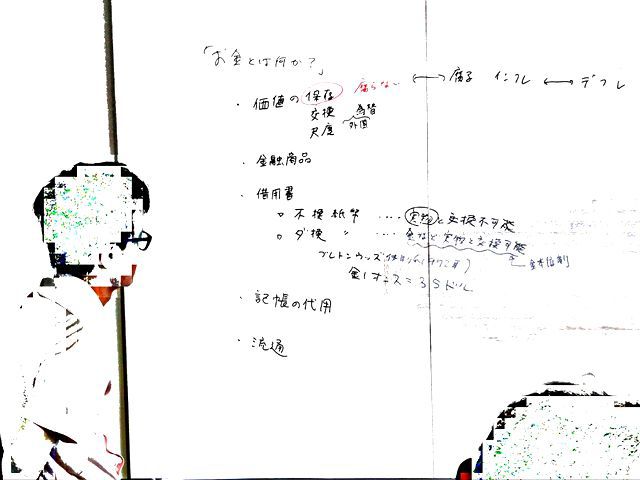 「お金とは何か?」
・価値の保存 腐らない ⟷ 腐る インフレ ⟷ デフレ
交換 為替
尺度 外貨
・金融商品
・借用書
○不換紙幣 ‥‥ 実物と交換不可能
○ダ換 〃 ‥‥ 金など実物と交換可能
ブレトンウッズ
金本位制
金1オンス=35ドル
・記帳の代用
・流通